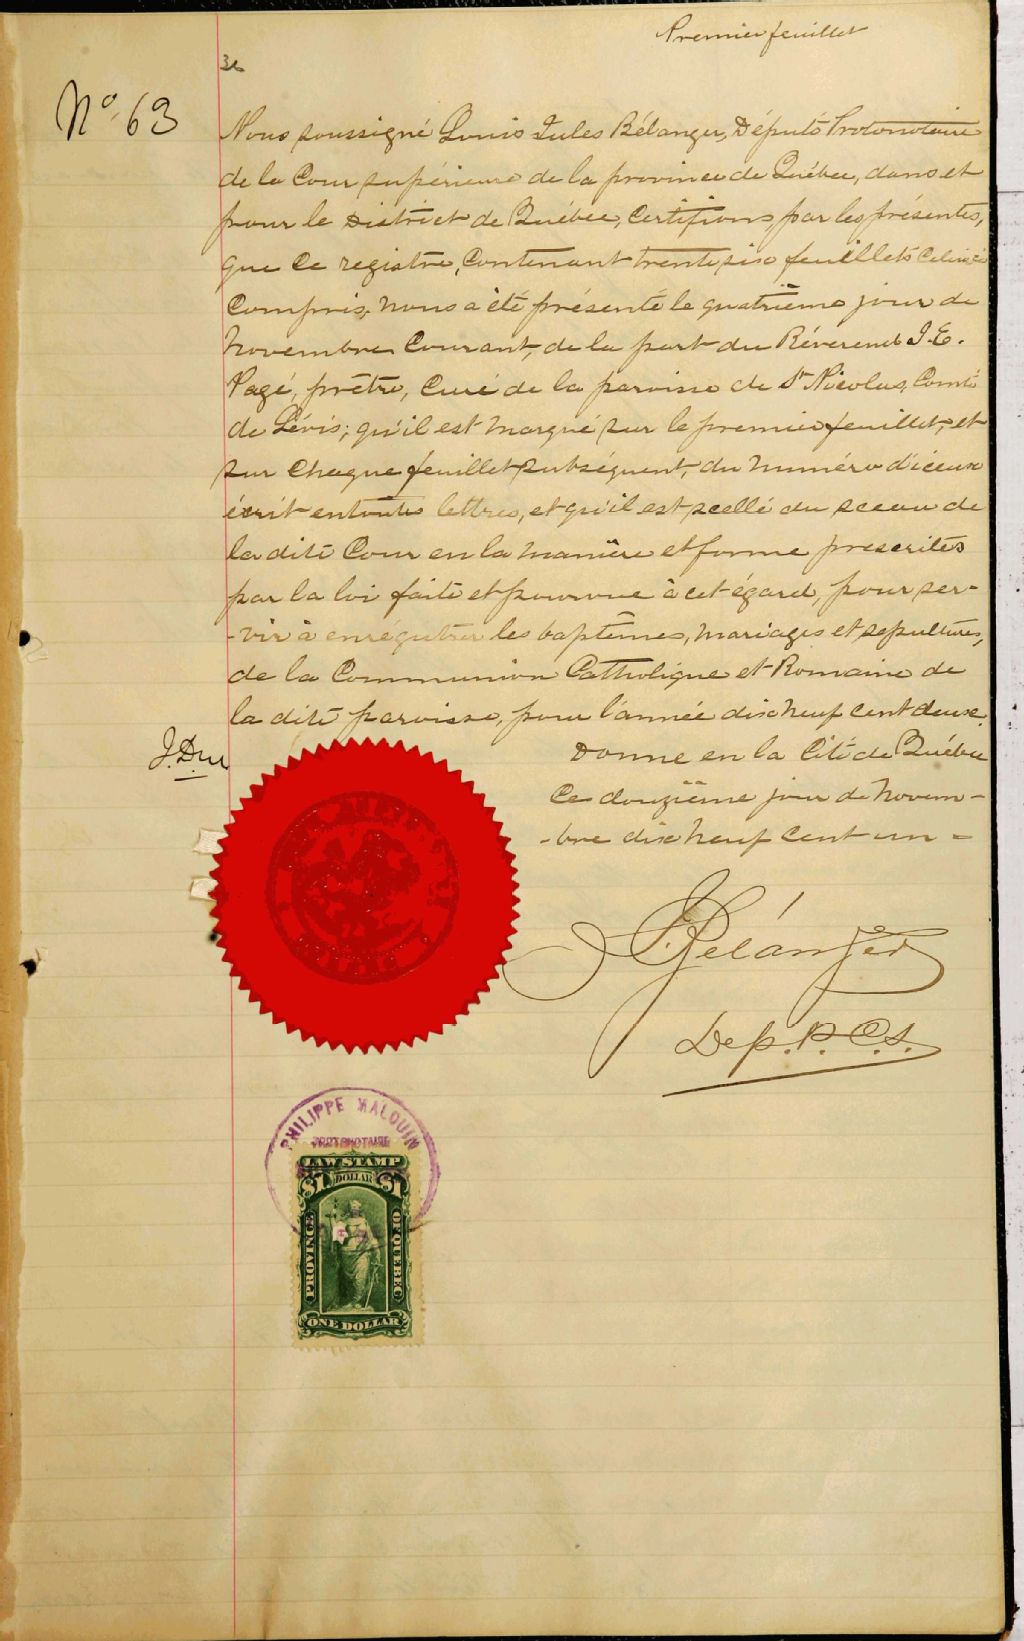 Premier feuillet
36
No 63
Nous soussigné Louis Jules Bélanger, Député Protonotaire
de la Cour supérieure de la province de Québec, dans et
pour le District de Québec, Certifions, par les présentes,
que ce registre, Contenant trente six feuillets Celui ci
Compris, nous a été présenté le quatrième jour de
Novembre Courant, de la part du Révérend J. E.
Pagé, prêtre, Curé de la paroisse de St Nicolas, Comté
de Lévis; qu'il est marqué sur le premier feuillet, et
sur Chaque feuillet subséquent, du numéro d'iceux
écrit en toutes lettres, et qu'il est scellé du sceau de
la dite Cour en la manière et forme prescrites
par la loi faite et pourvue à cet égard, pour ser-
-vir à enrégistrer les baptêmes, mariages et sepultures,
de la Communion Catholique et Romaine de
la dite paroisse, pour l'année dix neuf cent deux.
Donné en la Cité de Québec
Ce douzième jour de Novem-
-bre dix neuf cent un -
J. Bélanger
Dep. P. C. S.
PHILIPPE MALOUIN
PROTONOTAIRE
LAW STAMP
$1 DOLLAR $1
PROVINCE OF QUEBEC
ONE DOLLAR